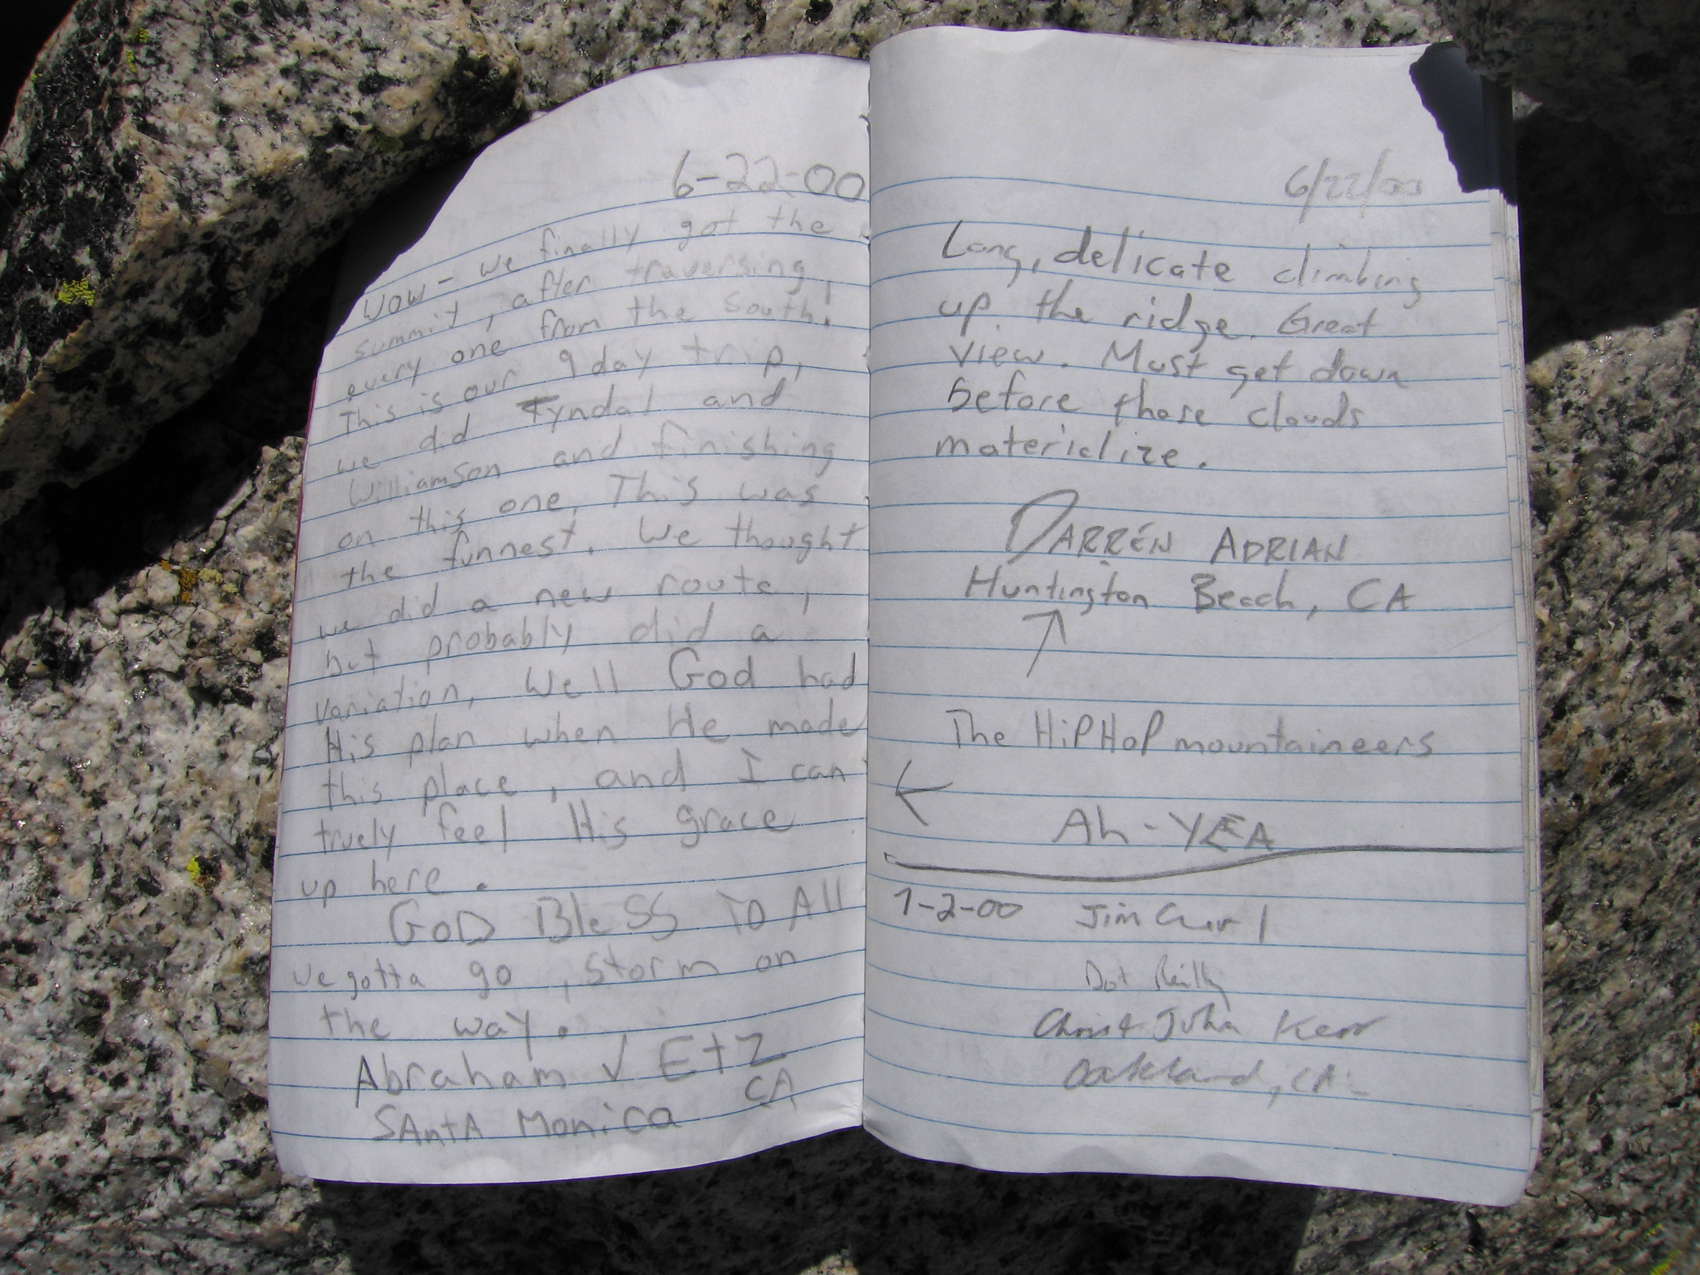 6-22-00
Wow - we finally got the
summit, after traversing
every one from the south!
This is our 9 day trip,
we did Tyndal and
Williamson and finishing
on this one. This was
the funnest. We thought
we did a new route,
but probably did a
variation, Well God had
His plan when He made
this place, and I can
truely feel His grace
up here.
GOD Bless TO All
we gotta go, storm on
the way.
Abraham Etz
SAntA Monica CA
6/22/00
Long, delicate climbing
up the ridge. Great
view. Must get down
before those clouds
materialize.
DARREN ADRIAN
Huntington Beach, CA
The HipHop mountaineers
Ah-YEA
7-2-00 Jim
Reilly
Chris & Julia Kerr
Oakland, CA